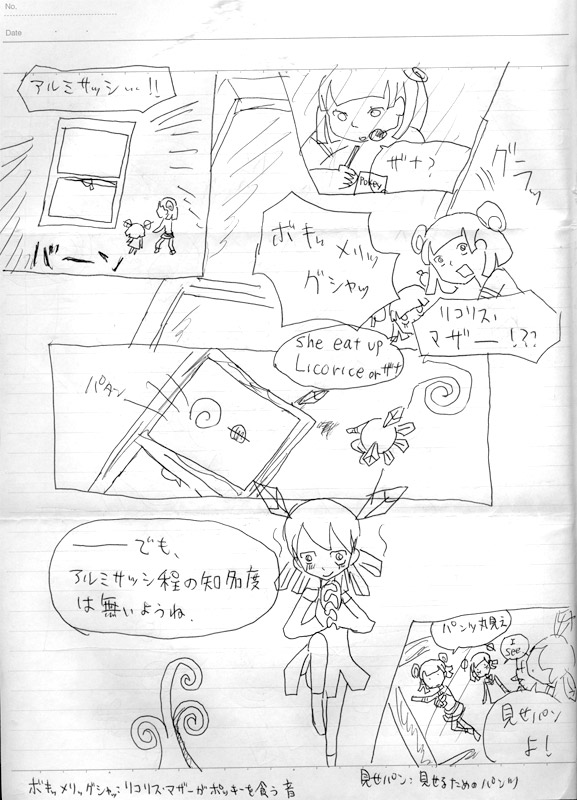 No.
Date
アルミサッシ…!!
バーン
ザナ?
Pokey
グラッ
ボキッ
メリッッ
グシャッ
リコリス・
マザー!??
she eat up
Licorice or ザナ
パターン
――でも、
アルミサッシ程の知多度
は無いようね.
パンツ丸見え
I
see
見せパン
よ!
ボキッメリッグシャッ:リコリス・マザーがポッキーを食う音
見せパン:見せるためのパンツ